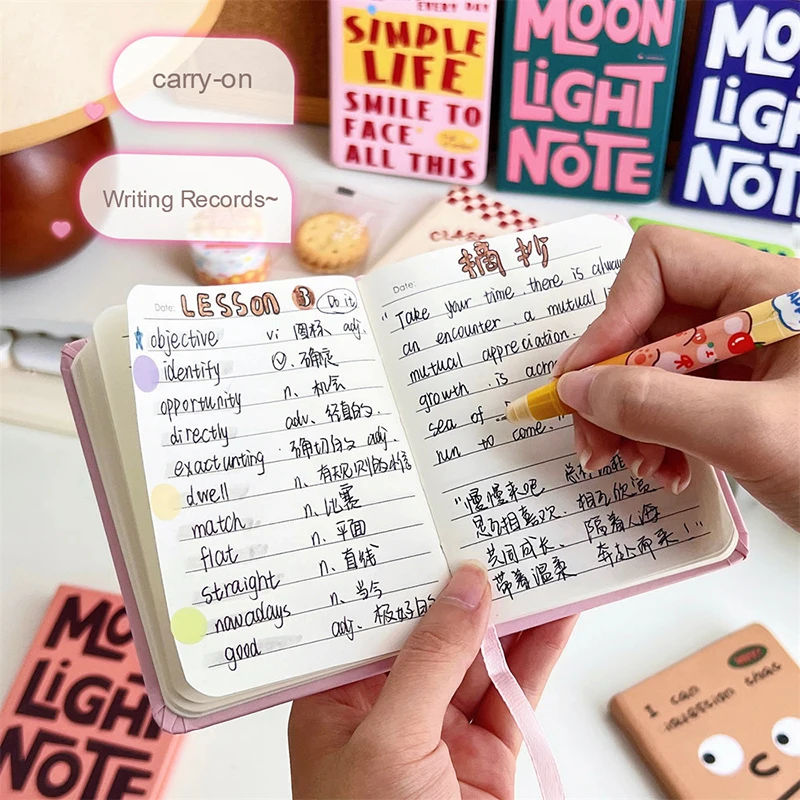 carry-on
Writing Records~
EVERY DAY
SIMPLE
LIFE
SMILE TO
FACE
ALL THIS
MOON
LIGHT
NOTE
MO
LIGH
NOT
CLASS
Date:
LESSON 3
Do it
objective vi 图标 adj.
identify 确定
opportunity n. 机会
directly adv. 径直的
exactunting 确切的 adj.
dwell n. 有规则的
match n. 比赛
flat n. 平面
straight n. 直线
nowadays n. 当今
good adj. 极好的
Date:
摘抄
"Take your time. there is always
an encounter. a mutual
mutual appreciation.
growth. is
sea of
run to come.
"慢慢来吧
是互相喜欢. 相互欣赏
共同成长、 隔着人海
带着温柔 奔赴而来！"
MO
LIGH
NOTE
I can